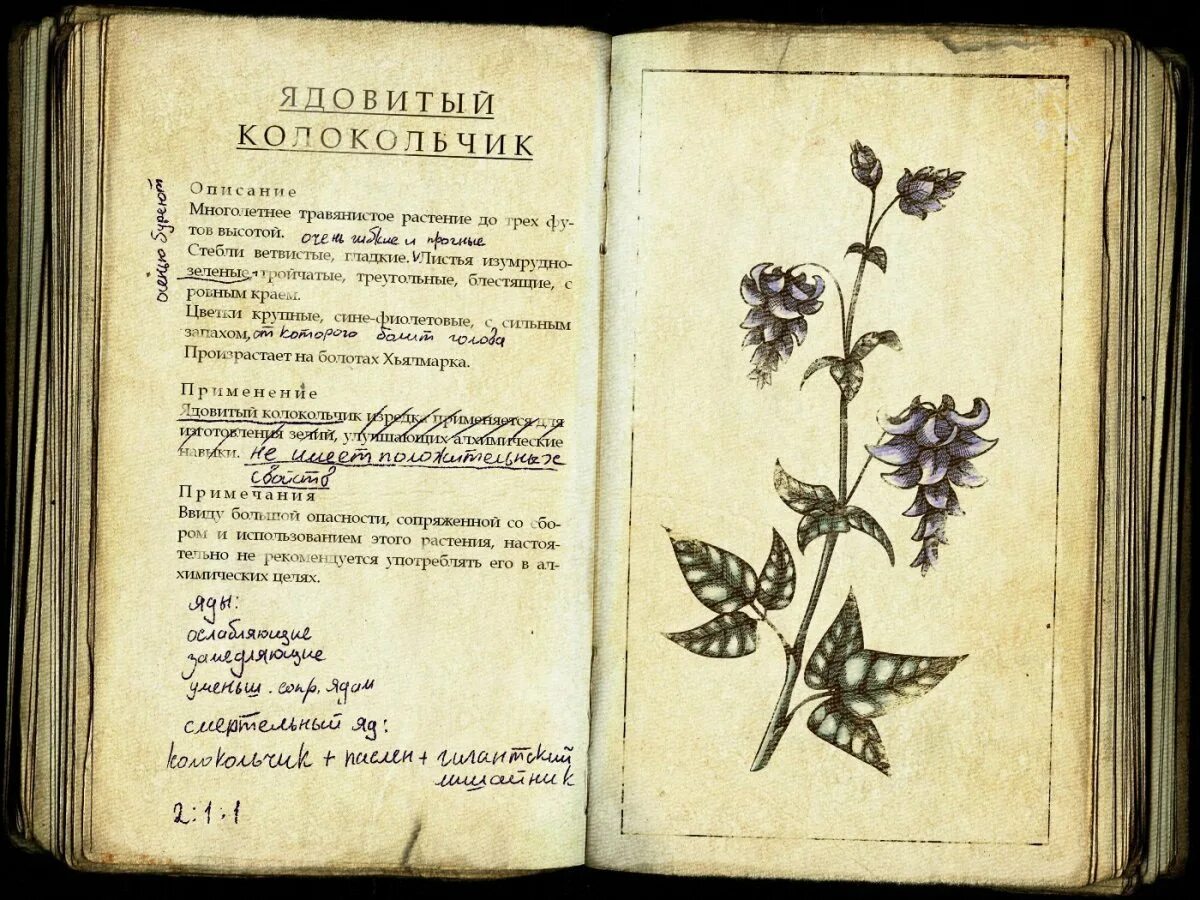 ЯДОВИТЫЙ
КОЛОКОЛЬЧИК
Описание
Многолетнее травянистое растение до трех фу-
тов высотой. очень гибкие и прочные
Стебли ветвистые, гладкие. V Листья изумрудно-
зеленые, тройчатые, треугольные, блестящие, с
ровным краем.
осенью буреют
Цветки крупные, сине-фиолетовые, с сильным
запахом, от которого болит голова
Произрастает на болотах Хьялмарка.
Применение
Ядовитый колокольчик изредка применяется для
изготовления зелий, улучшающих алхимические
навыки. не имеет положительных
свойств
Примечания
Ввиду большой опасности, сопряженной со сбо-
ром и использованием этого растения, настоя-
тельно не рекомендуется употреблять его в ал-
химических целях.
яды:
ослабляющие
замедляющие
уменьш. сопр. ядам
смертельный яд:
колокольчик + паслен + гигантский
лишайник
2:1:1